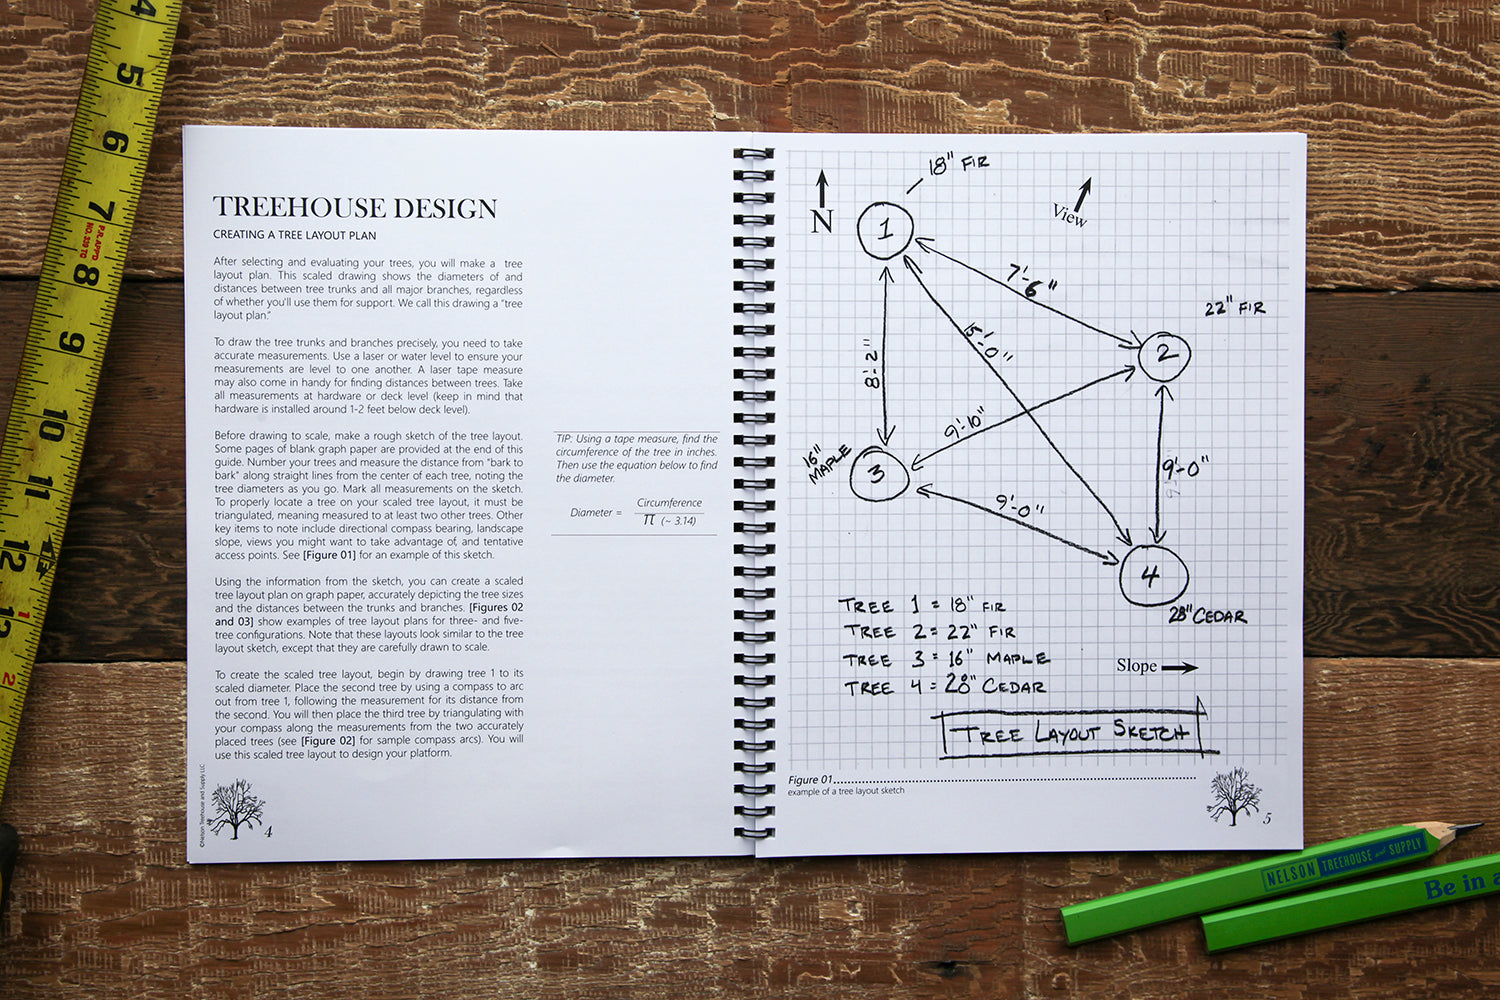 4
5
6
7
P.R. APP'D
8
9
10
11
12
1
13
2
TREEHOUSE DESIGN
CREATING A TREE LAYOUT PLAN
After selecting and evaluating your trees, you will make a tree
layout plan. This scaled drawing shows the diameters of and
distances between tree trunks and all major branches, regardless
of whether you'll use them for support. We call this drawing a "tree
layout plan."
To draw the tree trunks and branches precisely, you need to take
accurate measurements. Use a laser or water level to ensure your
measurements are level to one another. A laser tape measure
may also come in handy for finding distances between trees. Take
all measurements at hardware or deck level (keep in mind that
hardware is installed around 1-2 feet below deck level).
Before drawing to scale, make a rough sketch of the tree layout.
Some pages of blank graph paper are provided at the end of this
guide. Number your trees and measure the distance from "bark to
bark" along straight lines from the center of each tree, noting the
tree diameters as you go. Mark all measurements on the sketch.
To properly locate a tree on your scaled tree layout, it must be
triangulated, meaning measured to at least two other trees. Other
key items to note include directional compass bearing, landscape
slope, views you might want to take advantage of, and tentative
access points. See [Figure 01] for an example of this sketch.
Using the information from the sketch, you can create a scaled
tree layout plan on graph paper, accurately depicting the tree sizes
and the distances between the trunks and branches. [Figures 02
and 03] show examples of tree layout plans for three- and five-
tree configurations. Note that these layouts look similar to the tree
layout sketch, except that they are carefully drawn to scale.
To create the scaled tree layout, begin by drawing tree 1 to its
scaled diameter. Place the second tree by using a compass to arc
out from tree 1, following the measurement for its distance from
the second. You will then place the third tree by triangulating with
your compass along the measurements from the two accurately
placed trees (see [Figure 02] for sample compass arcs). You will
use this scaled tree layout to design your platform.
TIP: Using a tape measure, find the
circumference of the tree in inches.
Then use the equation below to find
the diameter.
Diameter = Circumference
π (~ 3.14)
©Nelson Treehouse and Supply LLC
4
N
18" FIR
View
1
7'-6"
22" FIR
2
8'-2"
15'-0"
9'-10"
16"
MAPLE
3
9'-0"
9'-0"
4
28" CEDAR
TREE 1 = 18" FIR
TREE 2 = 22" FIR
TREE 3 = 16" MAPLE
TREE 4 = 28" CEDAR
Slope
TREE LAYOUT SKETCH
Figure 01
example of a tree layout sketch
5
NELSON TREEHOUSE and SUPPLY
Be in a